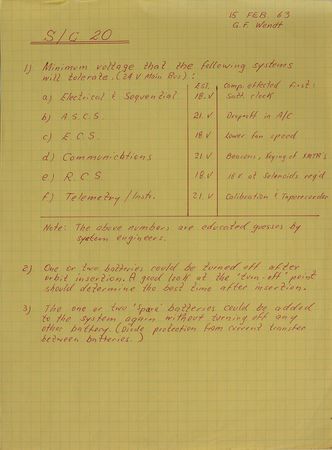 15 FEB. 63
G.F. Wendt
S/C 20
1) Minimum voltage that the following systems
will tolerate. (24 V Main Bus):
Est. Comp. affected first:
a) Electrical & Sequential 18.V Satt. clock
b) A.S.C.S. 21.V Drop-off in A/C
c) E.C.S. 18.V Lower fan speed
d) Communications 21.V Beacons, Keying of
e) R.C.S. 18.V 18 V at Solenoids req'd
f) Telemetry/Instr. 21.V Calibration & Taperecorder
Note: The above numbers are educated guesses by
system engineers.
2) One or two batteries could be turned off after
orbit insertion. A good look at the "turn-off" point
should determine the best time after insertion.
3) The one or two "spare" batteries could be added
to the system again without turning off any
other battery. (Diode protection from current transfer
between batteries.)